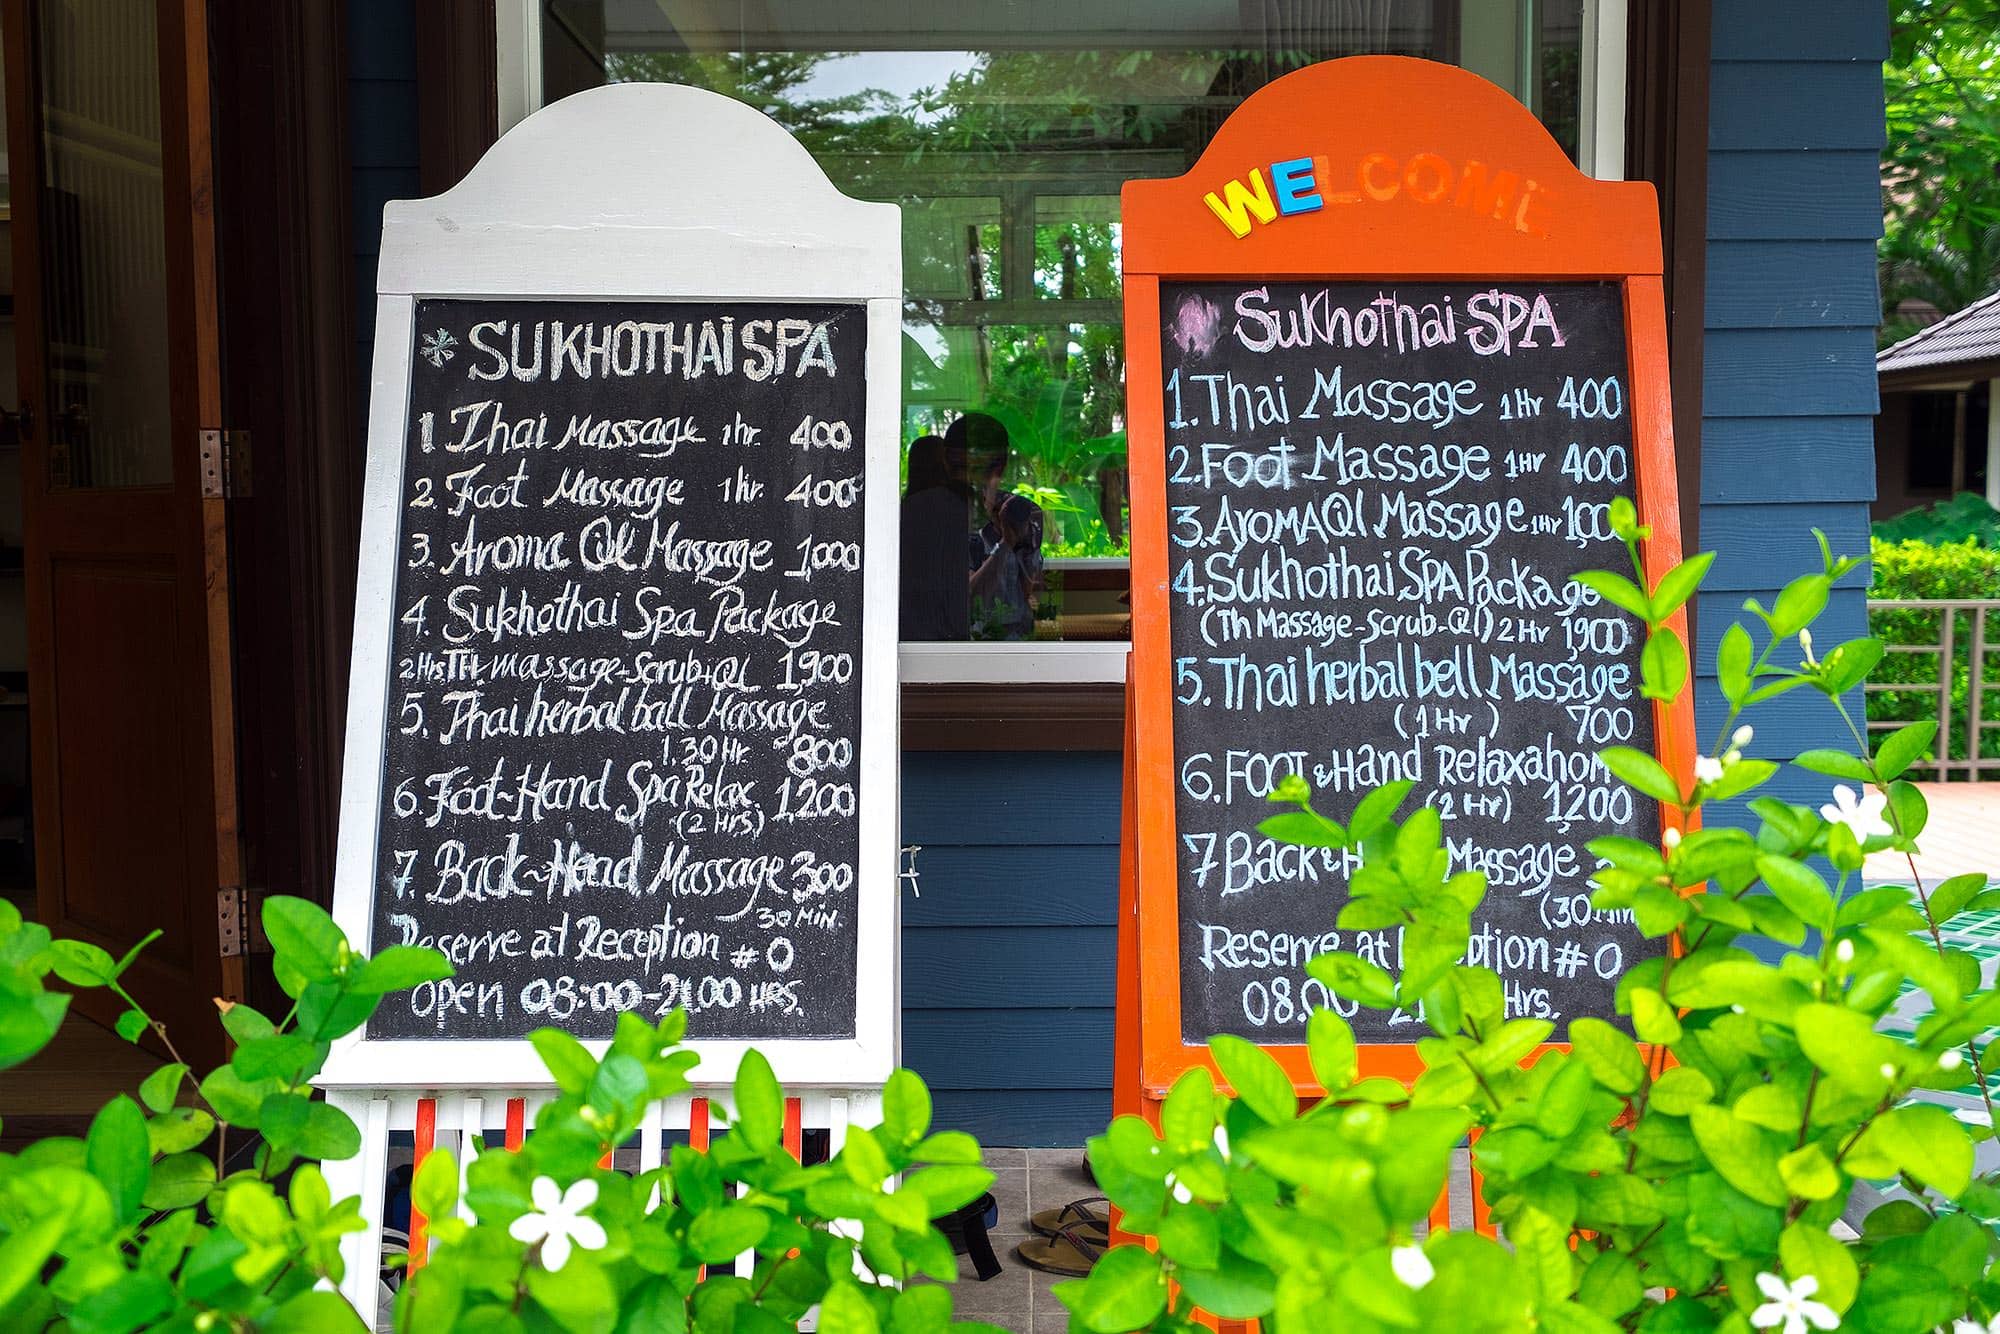 SUKHOTHAI SPA
1 Thai Massage 1hr. 400
2. Foot Massage 1hr. 400
3. Aroma Oil Massage 1,000
4. Sukhothai Spa Package
2Hrs.TH-massage-Scrub+Oil 1,900
5. Thai herbal ball Massage
1.30Hr. 800
6. Foot-Hand Spa Relax. 1,200
(2 Hrs.)
7. Back-Head Massage 300
30 MIN.
Reserve at Reception # 0
open 08:00-21.00 HRS.
WELCOME
Sukhothai SPA
1. Thai Massage 1Hr 400
2. Foot Massage 1Hr 400
3. AroMA Oil Massage 1Hr
4. Sukhothai SPA Package
(Th Massage-Scrub-Oil) 2Hr 1,900
5. Thai herbal bell Massage
(1Hr) 700
6. FOOT & Hand Relaxahon
(2Hr) 1,200
7 Back & Massage
(30 Min
Reserve at # 0
08.00 Hrs.